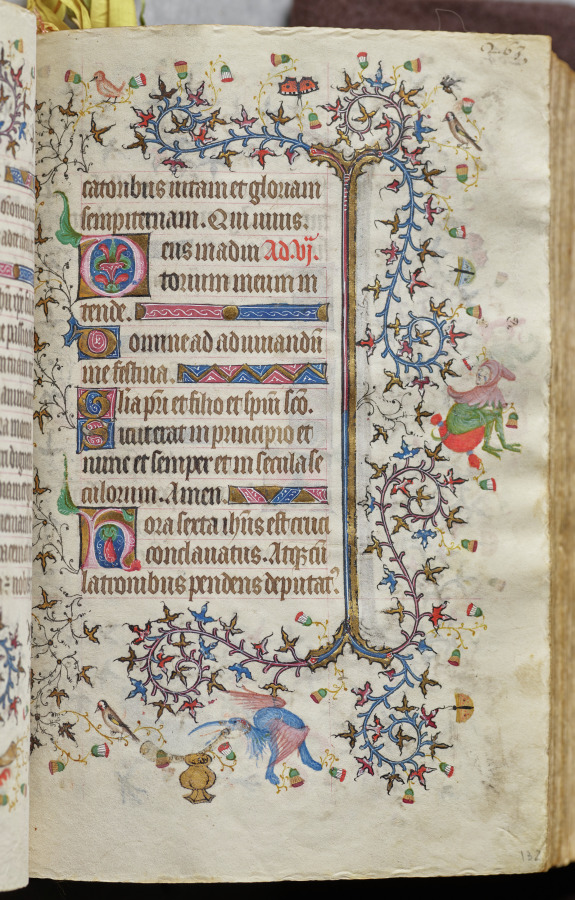 catoribus uitam et gloriam
sempiternam. Qui uiuis.
Deus in adiu Ad. vj.
torium meum in
tende.
Domine ad adiuuandū
me festina.
Glīa pr̄i et filio et spūi sc̄o.
Sicut erat in principio et
nunc et semper et in secula se
culorum. Amen.
Hora sexta ih̄us est cruci
conclauatus. Atqꝫ cū
latronibus pendens deputat᷒.
132